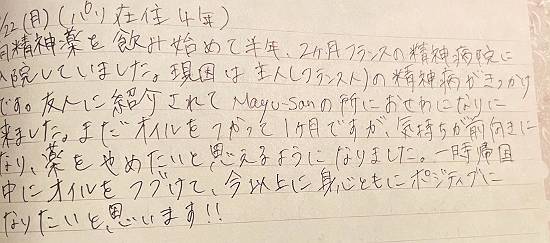 /22(月)(パリ在住4年)
向精神薬を飲み始めて半年、2ヶ月フランスの精神病院に
入院していました。現因は主人(フランス人)の精神病がきっかけ
です。友人に紹介されてMayu-sanの所におせわになりに
来ました。まだオイルをつかって1ヶ月ですが、気持ちが前向きに
なり、薬をやめたいと思えるようになりました。一時帰国
中にオイルをつづけて、今以上に身心ともにポジティブに
なりたいと思います!!